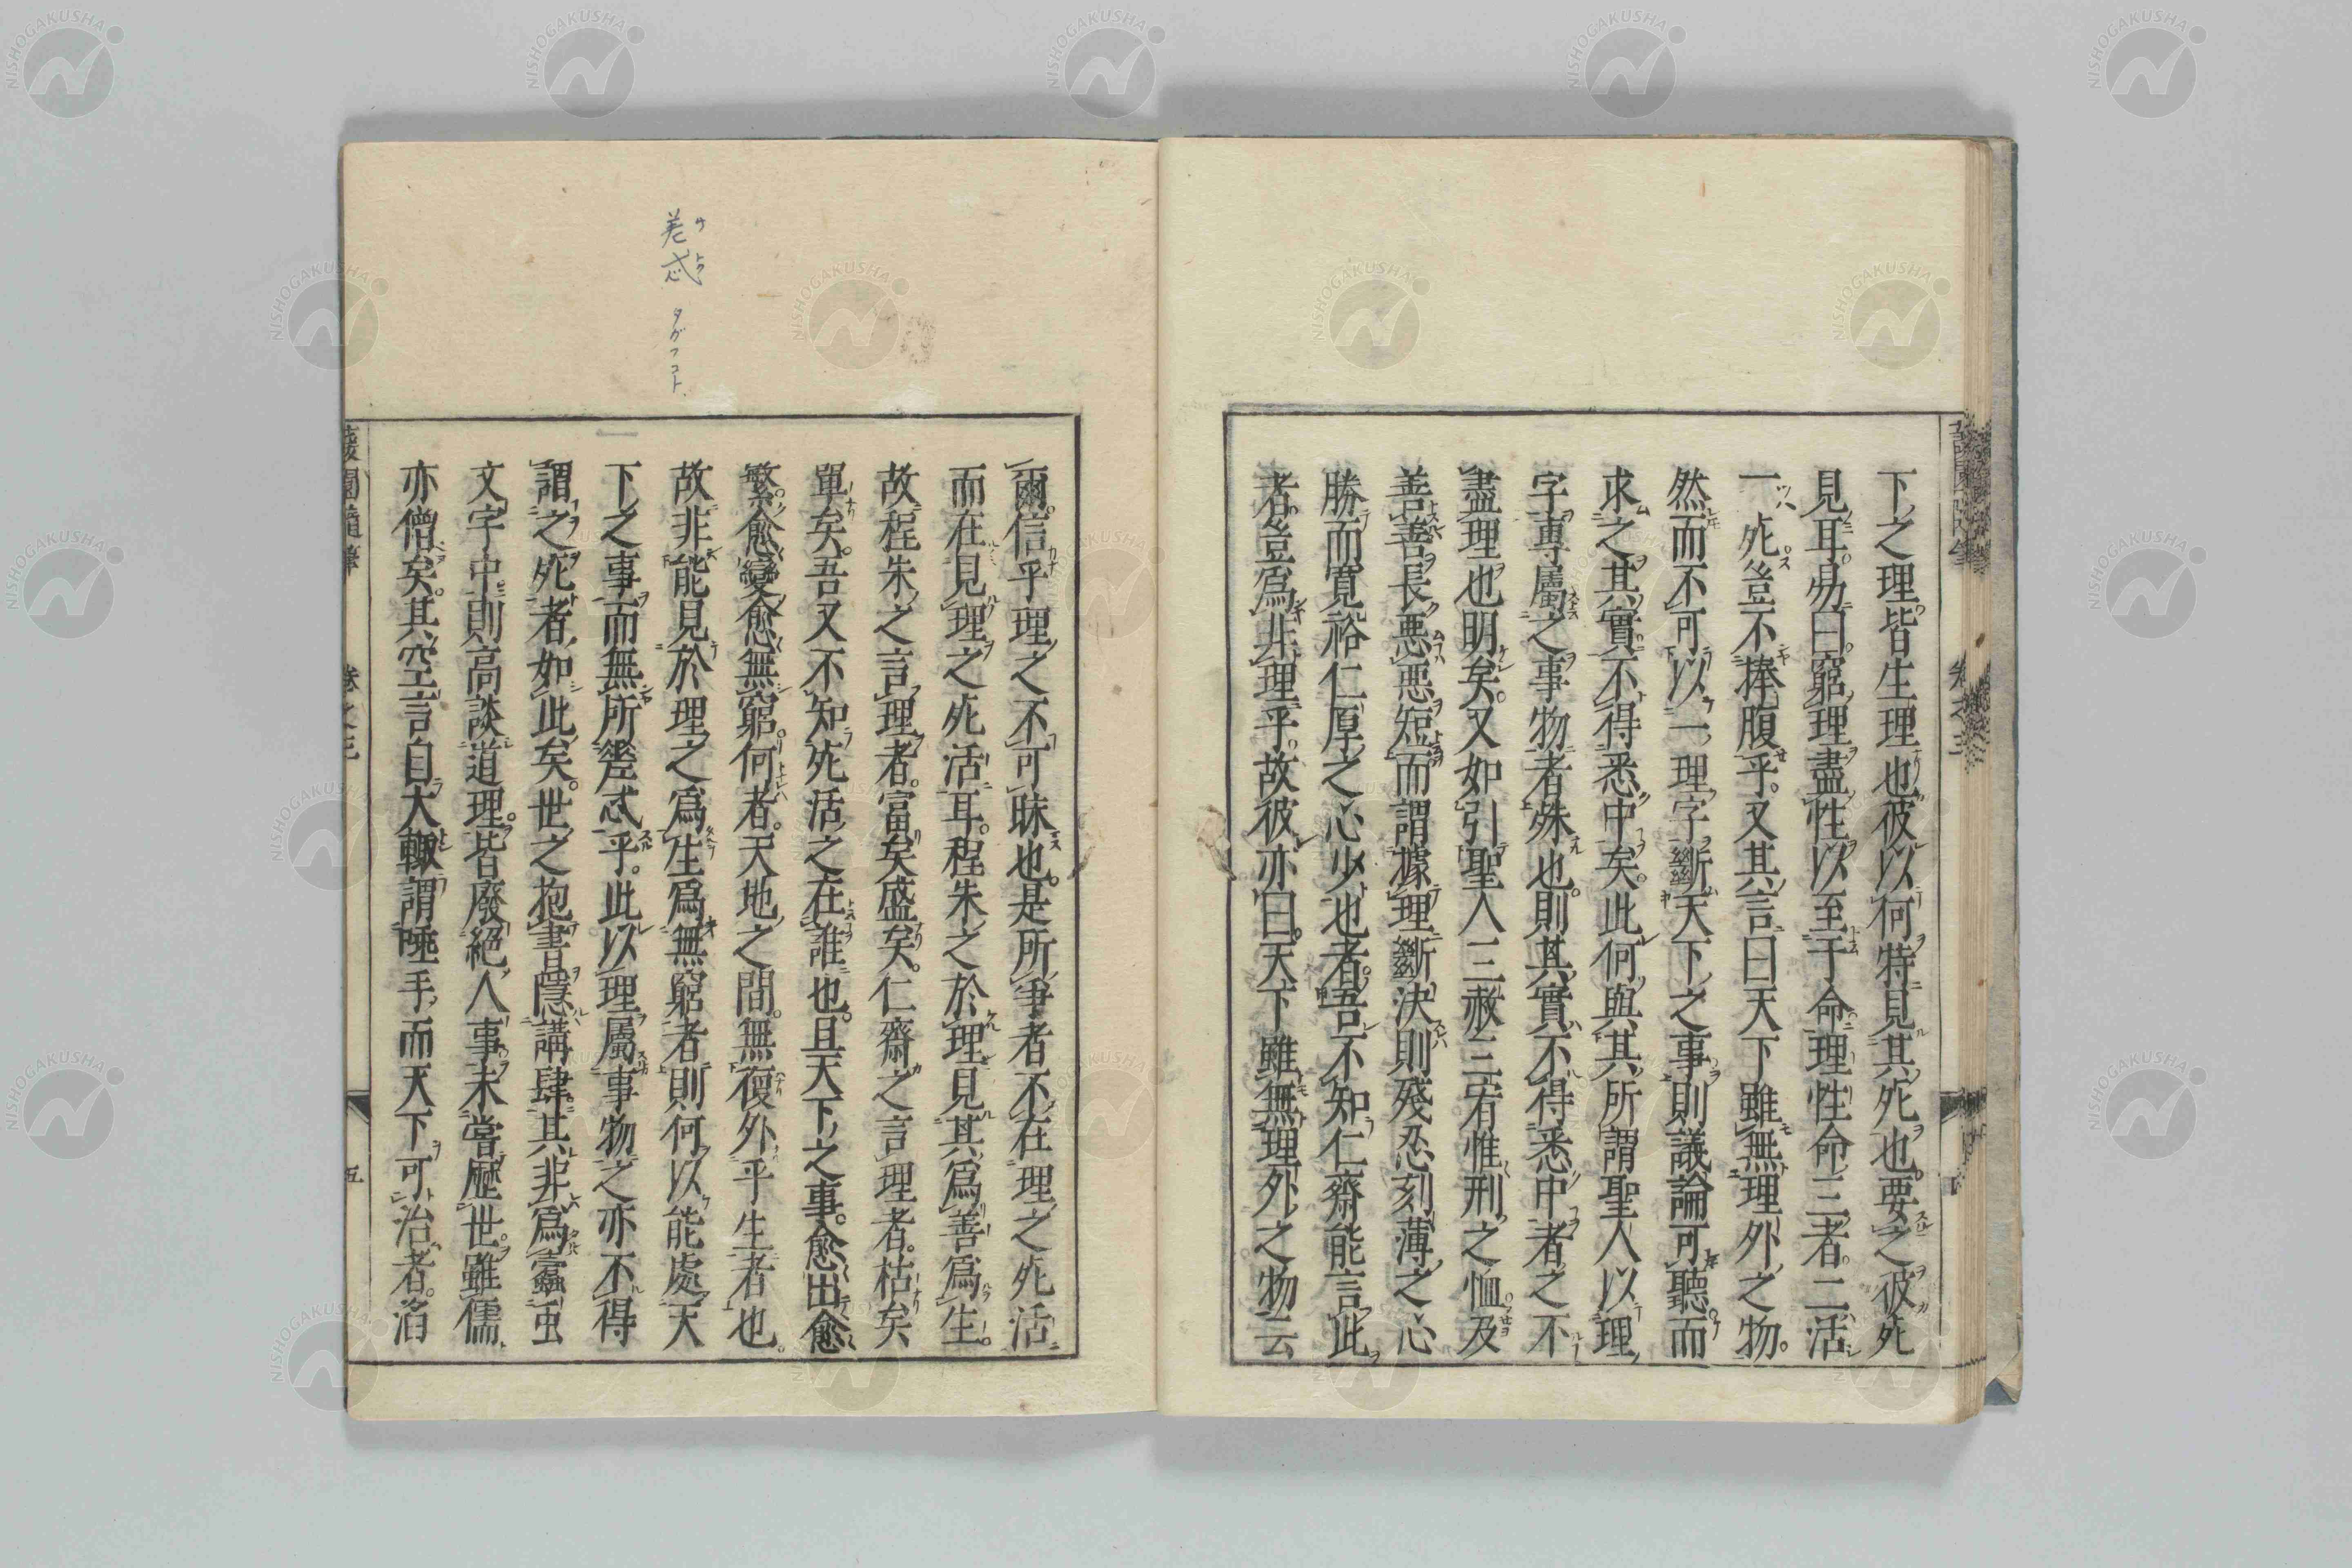 下之理皆生理也彼以何特見其死也要之彼死
見耳易曰窮理盡性以至于命理性命三者二活
一死豈不捧腹乎又其言曰天下雖無理外之物
然而不可以一理字斷天下之事則議論可聽而
求之其實不得悉中矣此何與其所謂聖人以理
字專屬之事物者殊也則其實不得悉中者之不
盡理也明矣又如引聖人三赦三宥惟刑之恤及
善善長惡惡短而謂據理斷決則殘忍刻薄之心
勝而寬裕仁厚之心少也者吾不知仁齋能言此
者豈爲非理乎故彼亦曰天下雖無理外之物云
卷之三
爾信乎理之不可昧也是所爭者不在理之死活
而在見理之死活耳程朱之於理見其爲善爲生
故程朱之言理者富矣盛矣仁齋之言理者枯矣
單矣吾又不知死活之在誰也且天下之事愈出愈
繁愈變愈無窮何者天地之間無復外乎生者也
故非能見於理之爲生爲無窮者則何以能處天
下之事而無所差忒乎此以理屬事物之亦不得
謂之死者如此矣世之抱書隱講肆其非爲蠹虫
文字中則高談道理皆廢絕人事未嘗歷世雖儒
亦僧矣其空言自大輙謂唾手而天下可治者滔
蘐園隨筆 卷之三 五
差忒 タガフコト
NISHOGAKUSHA